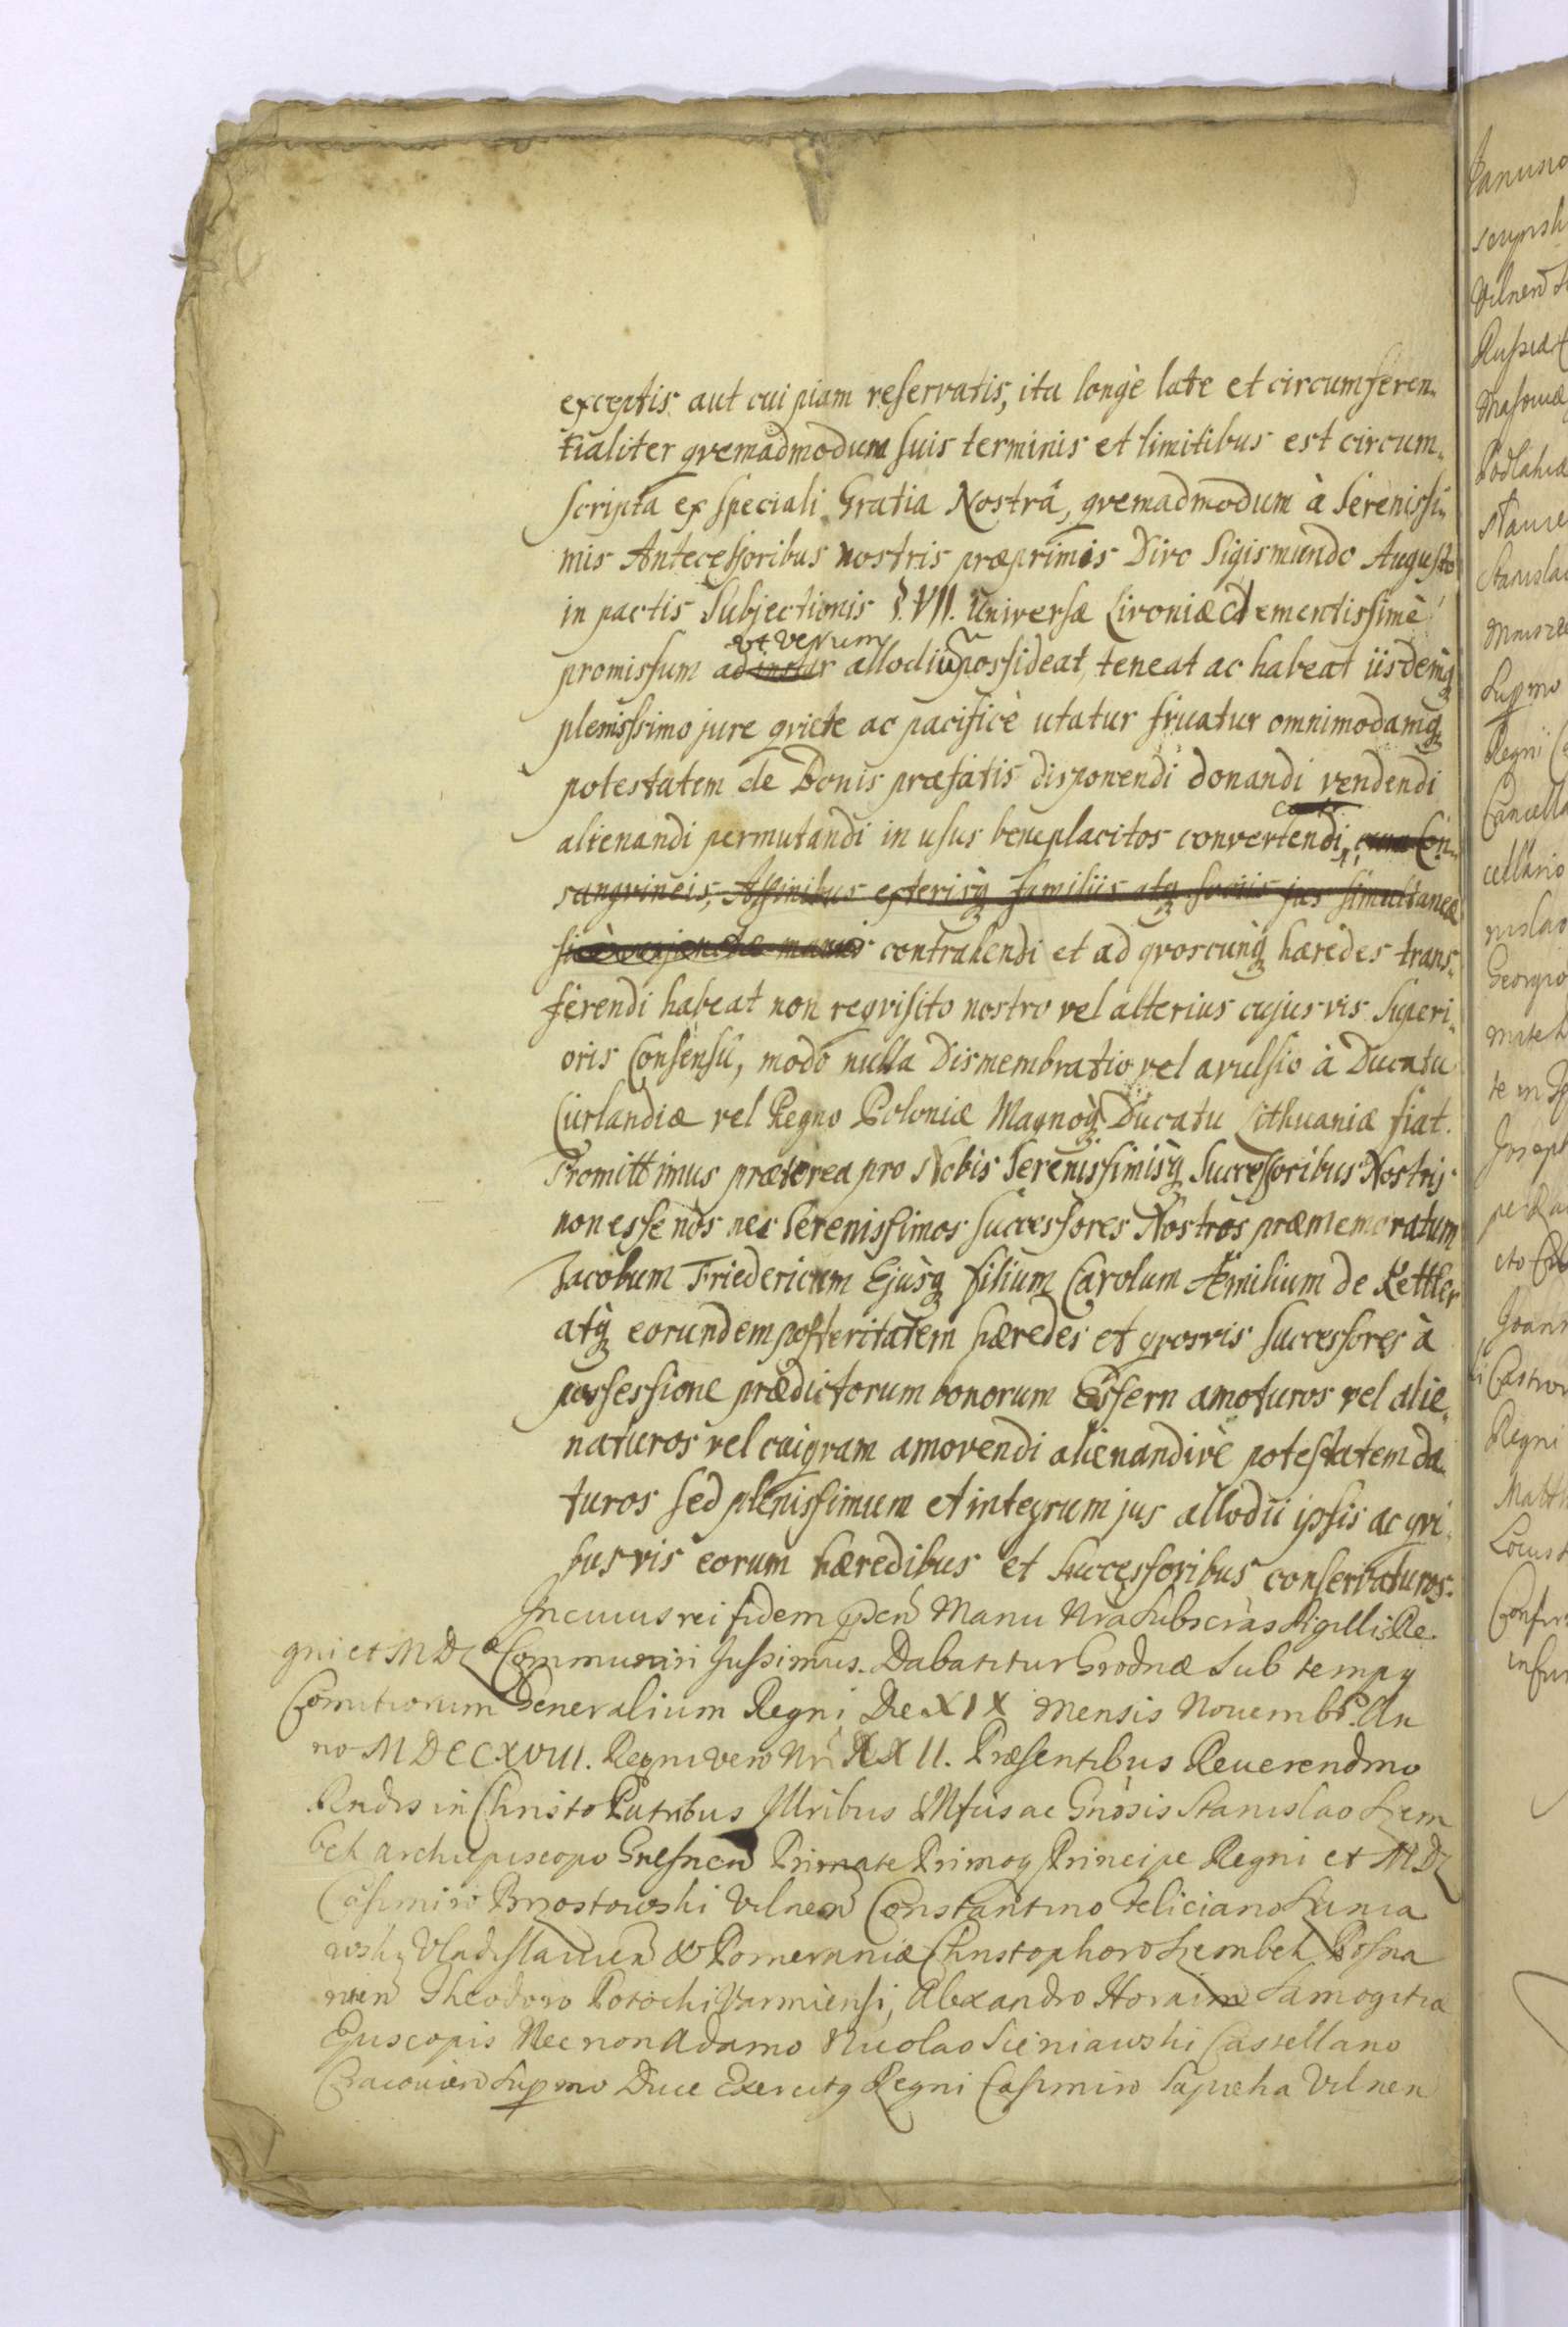 exceptis aut cuipiam reservatis, ita longè late et circumferen-
tialiter qvemadmodum suis terminis et limitibus est circum-
scripta ex speciali Gratia Nostrâ, qvemadmodum à Serenissi-
mis Antecessoribus nostris præprimis Divo Sigismundo Augusto
in pactis Subjectionis §. VII. Universæ Livoniæ clementissimè
ut verum
promissum ad instar allodiũ possideat, teneat ac habeat iisdemq
plenissimo jure qviete ac pacificè utatur fruatur omnimodamq
potestatem de Bonis præfatis disponendi donandi vendendi
alienandi permutandi in usus beneplacitos convertendi, cum Con-
sangvineis, Affinibus exterisq familiis atq sociis jus simultaneæ
contrahendi et ad qvoscunq hæredes trans-
ferendi habeat non reqvisito nostro vel alterius cujusvis Superi-
oris Consensu, modo nulla Dismembratio vel avulsio à Ducatu
Curlandiæ vel Regno Poloniæ Magnoq Ducatu Lithuaniæ fiat.
Promittimus præterea pro Nobis Serenissimisq Successoribus Nostris
non esse nos nec Serenissimos Successores Nostros præmemoratum
Jacobum Friedericum Ejusq filium Carolum Æmilium de Kettler
atq eorundem posteritatem hæredes et qvosvis Successores à
possessione prædictorum bonorum Essern amoturos vel alie-
naturos vel cuiqvam amovendi alienandive potestatem da-
turos sed plenissimum et integrum jus allodii ipsis ac qvi-
busvis eorum hæredibus et Successoribus conservaturos.
In cuius rei fidem pñten Manu Nra Subscràs Sigillis Re-
gni et MDL Communiri Jussimus. Dabatur Grodnæ Sub tempg
Comitiorum Generalium Regni Die XIX Mensis Novembr. An
no MDCCXVIII. Regni vero Nri XXII. Præsentibus Reverendmo
Rndis in Christo Patribus Illribus Mfcis ac Gnòsis Stanislao Szem
bek Archiepiscopo Gnesnen Primate Primoq Principe Regni et MDL
Casimiro Brzostowski Vilnen Constantino Feliciano Szania
wski Vladislavien & Pomeraniæ Christophoro Szembek Posna
nien Theodoro Potocki Varmiensi, Alexandro Horain Samogitiæ
Episcopis Necnon Adamo Nicolao Sieniawski Castellano
Cracovien Supmo Duce Exercitg Regni Casimiro Sapieha Vilnen